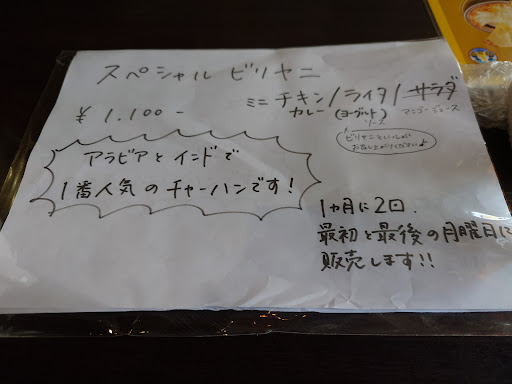 スペシャル ビリヤニ
¥1.100-
ミニ チキン/ライタ/サラダ
カレー (ヨーグルト) マンゴージュース
ソース
ビリヤニといっしょに
お召し上がりください♪
アラビアとインドで
1番人気のチャーハンです!
1ヶ月に2回.
最初と最後の月曜日に
販売します!!